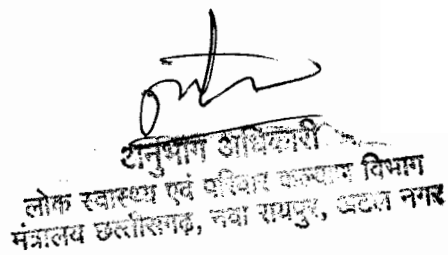 अनुभाग अधिकारी
लोक स्वास्थ्य एवं परिवार कल्याण विभाग
मंत्रालय छत्तीसगढ़, नवा रायपुर, अटल नगर